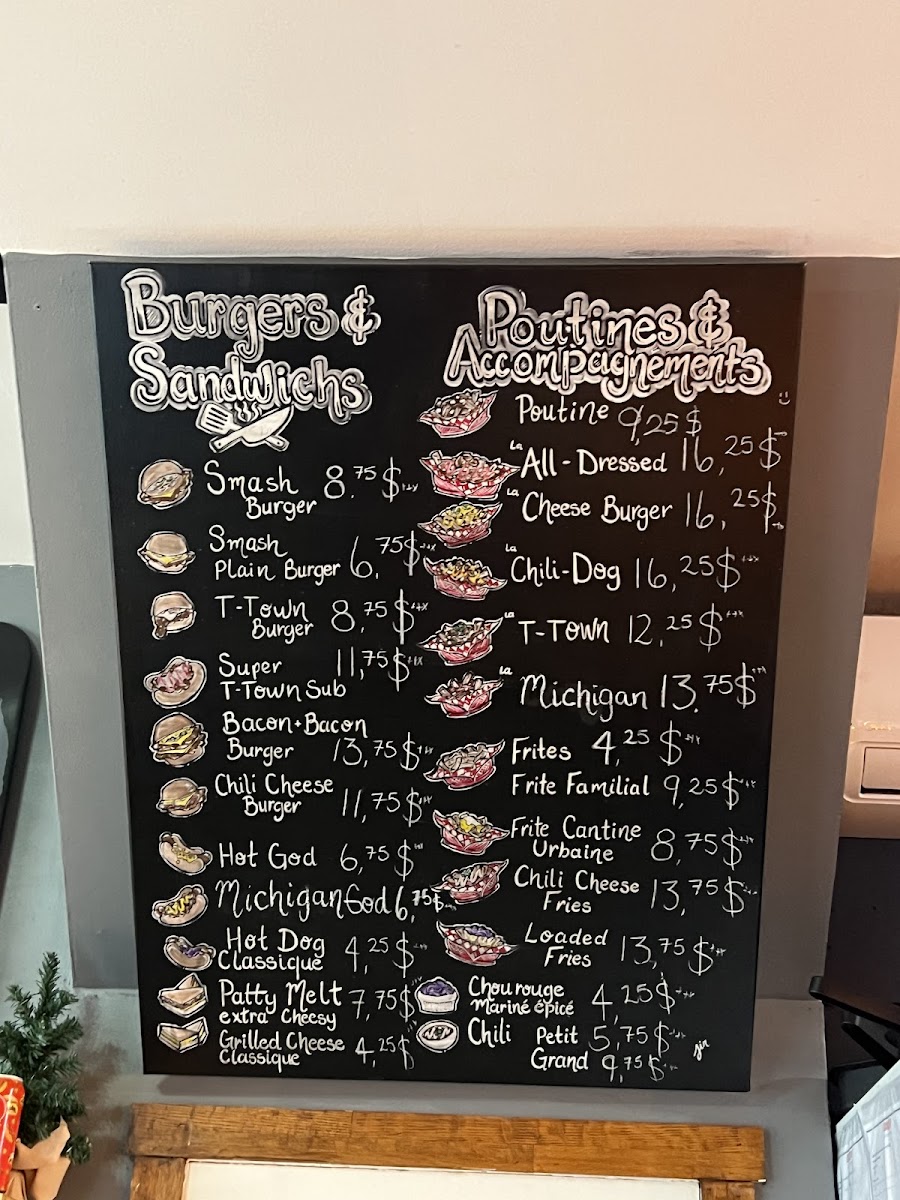 Burgers &
Sandwichs
Smash 8.75$
Burger
Smash
Plain Burger 6,75$
T-Town 8,75$
Burger
Super 11,75$
T-Town Sub
Bacon+Bacon
Burger 13,75$
Chili Cheese
Burger 11,75$
Hot God 6,75$
Michigan God 6,75$
Hot Dog 4,25$
Classique
Patty Melt 7,75$
extra Cheesy
Grilled Cheese 4,25$
Classique
Poutines &
Accompagnements
Poutine 9,25$
La All-Dressed 16,25$
La Cheese Burger 16,25$
La Chili-Dog 16,25$
La T-Town 12,25$
La Michigan 13.75$
Frites 4,25$
Frite Familial 9,25$
Frite Cantine
Urbaine 8,75$
Chili Cheese
Fries 13,75$
Loaded
Fries 13,75$
Chou rouge
Mariné épicé 4,25$
Chili Petit 5,75$
Grand 9,75$